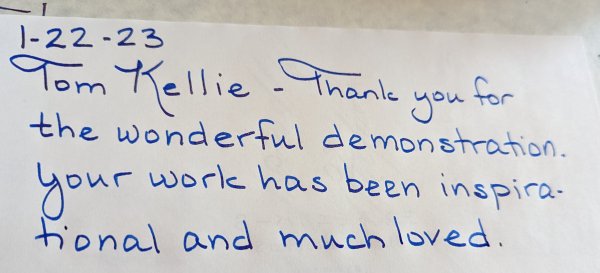 1-22-23
Tom Kellie - Thank you for
the wonderful demonstration.
your work has been inspira-
tional and much loved.